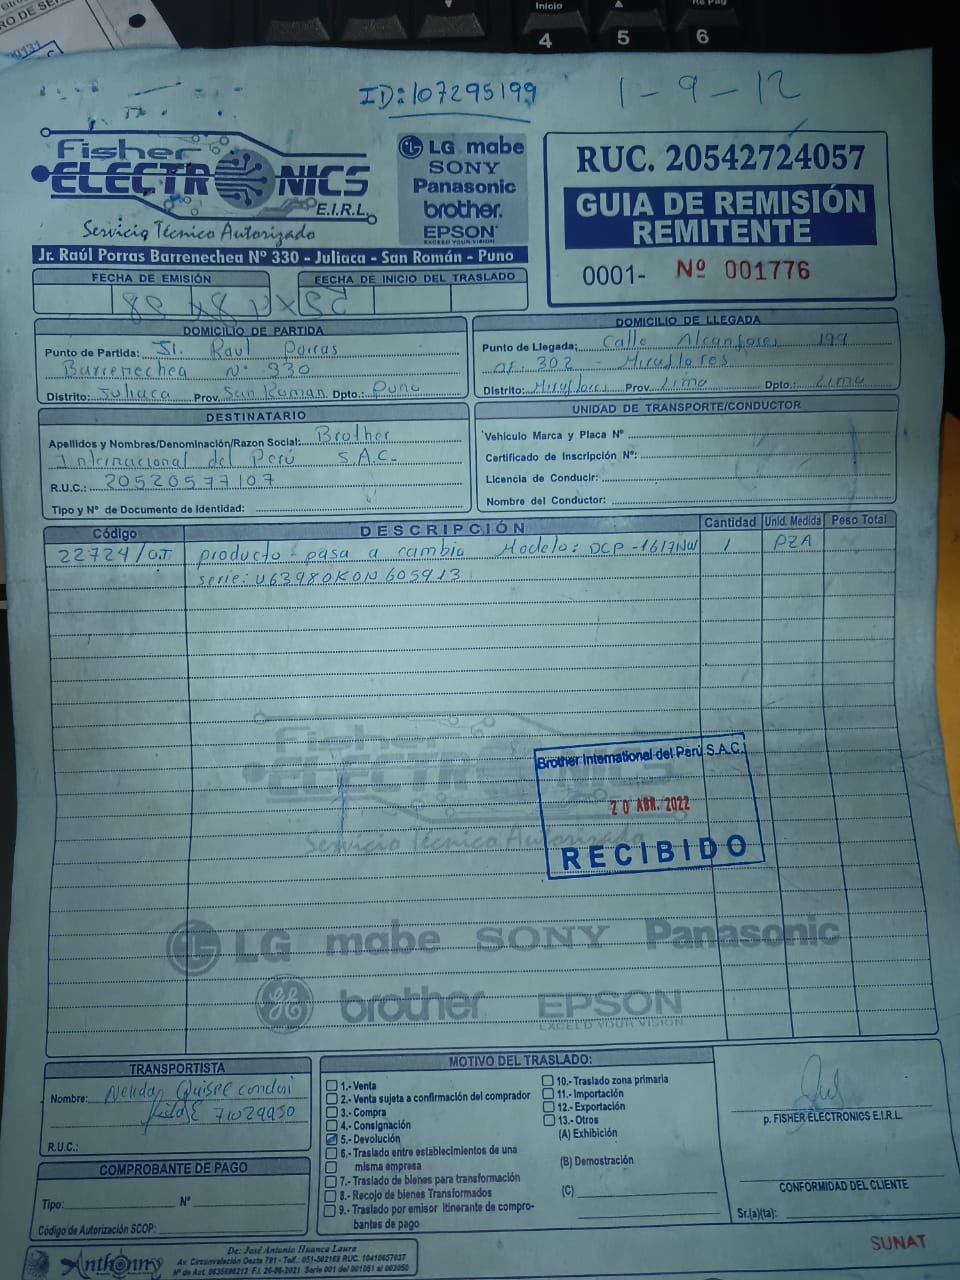 Inicio
4 5 6
ID: 107295199
1-9-12
Fisher
ELECTRONICS
E.I.R.L.
Servicio Técnico Autorizado
LG mabe
SONY
Panasonic
brother.
EPSON
EXCEED YOUR VISION
Jr. Raúl Porras Barrenechea Nº 330 - Juliaca - San Román - Puno
RUC. 20542724057
GUIA DE REMISIÓN
REMITENTE
0001- Nº 001776
FECHA DE EMISIÓN
FECHA DE INICIO DEL TRASLADO
DOMICILIO DE PARTIDA
Punto de Partida: Jr. Raul Porras
Barrenechea Nº 330
Distrito: Juliaca Prov. San Roman Dpto.: Puno
DOMICILIO DE LLEGADA
Punto de Llegada: Calle Alcanfores 199
of. 302 - Miraflores
Distrito: Miraflores Prov. Lima Dpto.: Lima
DESTINATARIO
Apellidos y Nombres/Denominación/Razon Social: Brother
Internacional del Perú S.A.C.
R.U.C.: 20520577107
Tipo y Nº de Documento de Identidad:
UNIDAD DE TRANSPORTE/CONDUCTOR
Vehículo Marca y Placa Nº
Certificado de Inscripción Nº:
Licencia de Conducir:
Nombre del Conductor:
Código DESCRIPCIÓN Cantidad Unid. Medida Peso Total
22724/OT producto - pasa a cambio Modelo: DCP-1617NW 1 PZA
serie: U63980K0N605913
Fisher
ELECTRONICS
Servicio Técnico Autorizado
Brother International del Perú S.A.C.
20 ABR. 2022
RECIBIDO
LG mabe SONY Panasonic
brother EPSON
EXCEED YOUR VISION
TRANSPORTISTA
Nombre: Nelida Quispe Condori
71029930
R.U.C.:
COMPROBANTE DE PAGO
Tipo: Nº
Código de Autorización SCOP:
MOTIVO DEL TRASLADO:
1.- Venta
2.- Venta sujeta a confirmación del comprador
3.- Compra
4.- Consignación
5.- Devolución
6.- Traslado entre establecimientos de una
misma empresa
7.- Traslado de bienes para transformación
8.- Recojo de bienes Transformados
9.- Traslado por emisor itinerante de compro-
bantes de pago
10.- Traslado zona primaria
11.- Importación
12.- Exportación
13.- Otros
(A) Exhibición
(B) Demostración
(C)
p. FISHER ELECTRONICS E.I.R.L.
CONFORMIDAD DEL CLIENTE
Sr.(a)(ta):
SUNAT
Anthonny
De: José Antonio Huanca Laura
Av. Circunvalación Oeste 781 - Telf.: 051-502169 RUC. 10410657037
Nº de Aut. 0635698213 F.I. 26-06-2021 Serie 001 del 001051 al 002050